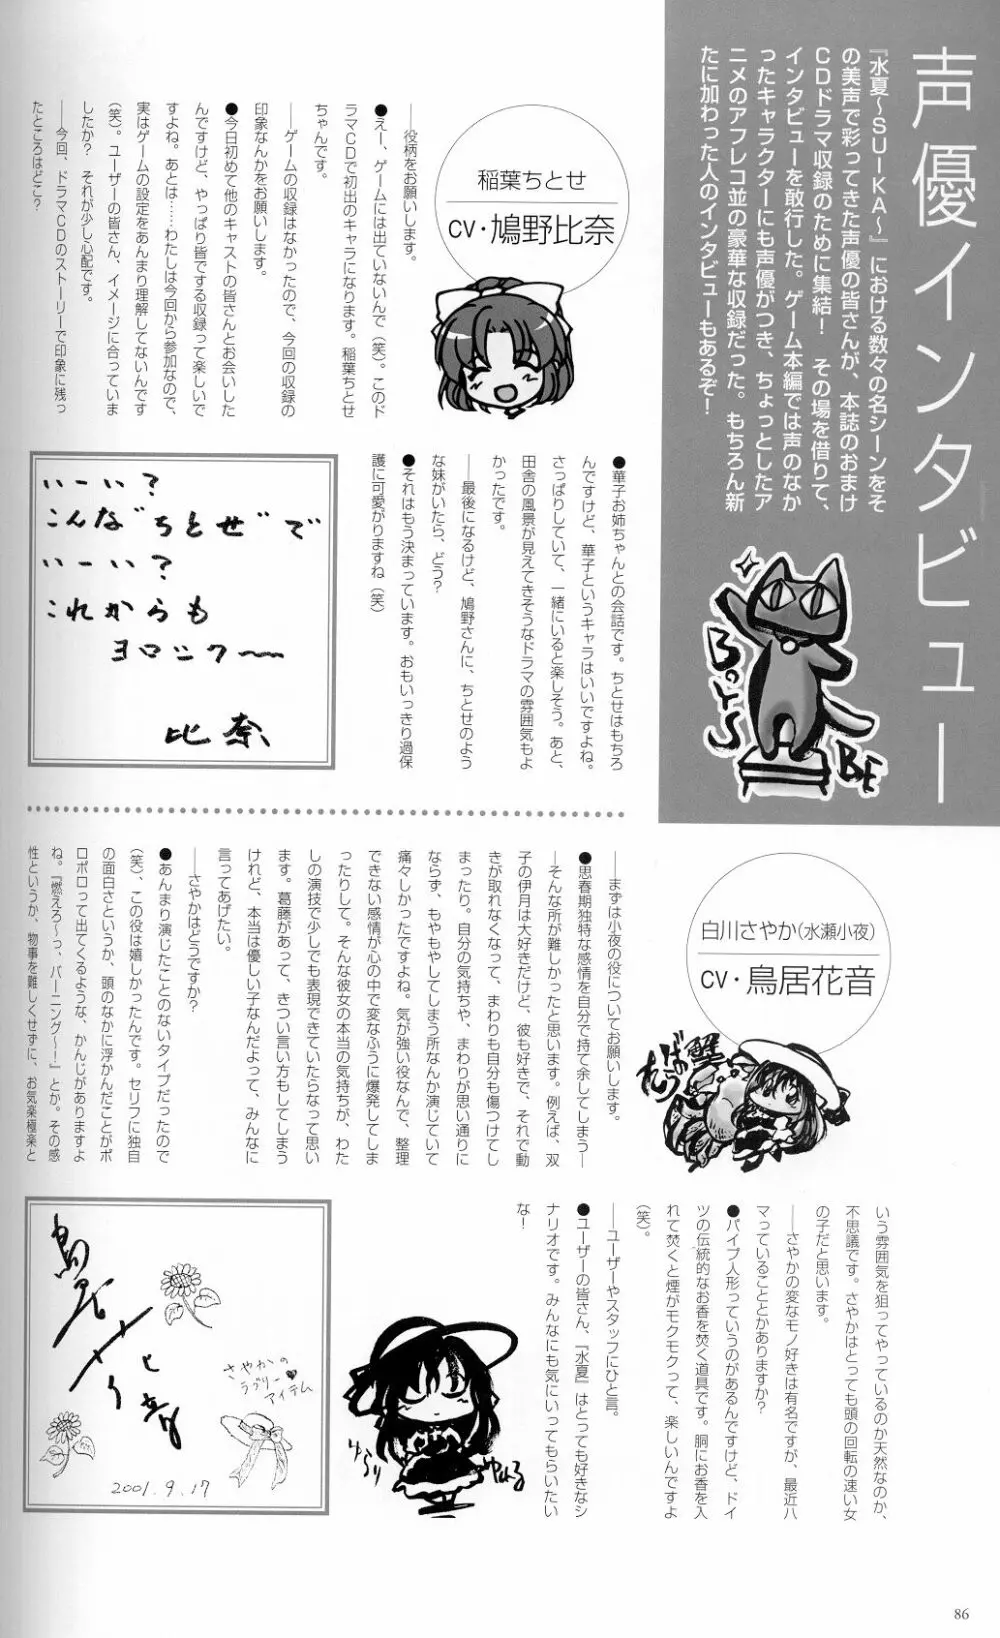 声優インタビュー
『水夏～SUIKA～』における数々の名シーンをそ
の美声で彩ってきた声優の皆さんが、本誌のおまけ
CDドラマ収録のために集結！　その場を借りて、
インタビューを敢行した。ゲーム本編では声のなか
ったキャラクターにも声優がつき、ちょっとしたア
ニメのアフレコ並の豪華な収録だった。もちろん新
たに加わった人のインタビューもあるぞ！
BOYS
BE
稲葉ちとせ
CV・鳩野比奈
――役柄をお願いします。
●えー、ゲームには出ていないんで（笑）。このド
ラマCDで初出のキャラになります。稲葉ちとせ
ちゃんです。
――ゲームの収録はなかったので、今回の収録の
印象なんかをお願いします。
●今日初めて他のキャストの皆さんとお会いした
んですけど、やっぱり皆でする収録って楽しいで
すよね。あとは……わたしは今回から参加なので、
実はゲームの設定をあんまり理解してないんです
（笑）。ユーザーの皆さん、イメージに合っていま
したか？　それが少し心配です。
――今回、ドラマCDのストーリーで印象に残っ
たところはどこ？
●華子お姉ちゃんとの会話です。ちとせはもちろ
んですけど、華子というキャラはいいですよね。
さっぱりしていて、一緒にいると楽しそう。あと、
田舎の風景が見えてきそうなドラマの雰囲気もよ
かったです。
――最後になるけど、鳩野さんに、ちとせのよう
な妹がいたら、どう？
●それはもう決まっています。おもいっきり過保
護に可愛がりますね（笑）
いーい？
こんな"ちとせ"で
いーい？
これからも
ヨロシク～
比奈
白川さやか（水瀬小夜）
CV・鳥居花音
――まずは小夜の役についてお願いします。
●思春期独特な感情を自分で持て余してしまう―
―そんな所が難しかったと思います。例えば、双
子の伊月は大好きだけど、彼も好きで、それで動
きが取れなくなって、まわりも自分も傷つけてし
まったり。自分の気持ちや、まわりが思い通りに
ならず、もやもやしてしまう所なんか演じていて
痛々しかったですよね。気が強い役なんで、整理
できない感情が心の中で変なふうに爆発してしま
ったりして。そんな彼女の本当の気持ちが、わた
しの演技で少しでも表現できていたらなって思い
ます。葛藤があって、きつい言い方もしてしまう
けれど、本当は優しい子なんだよって、みんなに
言ってあげたい。
――さやかはどうですか？
●あんまり演じたことのないタイプだったので
（笑）、この役は嬉しかったんです。セリフに独自
の面白さというか、頭のなかに浮かんだことがポ
ロポロって出てくるような、かんじがありますよ
ね。『燃えろ～っ、バーニング～！』とか。その感
性というか、物事を難しくせずに、お気楽極楽と
いう雰囲気を狙ってやっているのか天然なのか、
不思議です。さやかはとっても頭の回転の速い女
の子だと思います。
――さやかの変なモノ好きは有名ですが、最近ハ
マっていることとかありますか？
●パイプ人形っていうのがあるんですけど、ドイ
ツの伝統的なお香を焚く道具です。胴にお香を入
れて焚くと煙がモクモクって、楽しいんですよ
（笑）。
――ユーザーやスタッフにひと言。
●ユーザーの皆さん、『水夏』はとっても好きなシ
ナリオです。みんなにも気にいってもらいたい
な！
ゆらり
さやかの
ラブリー♥
アイテム
2001.9.17
86